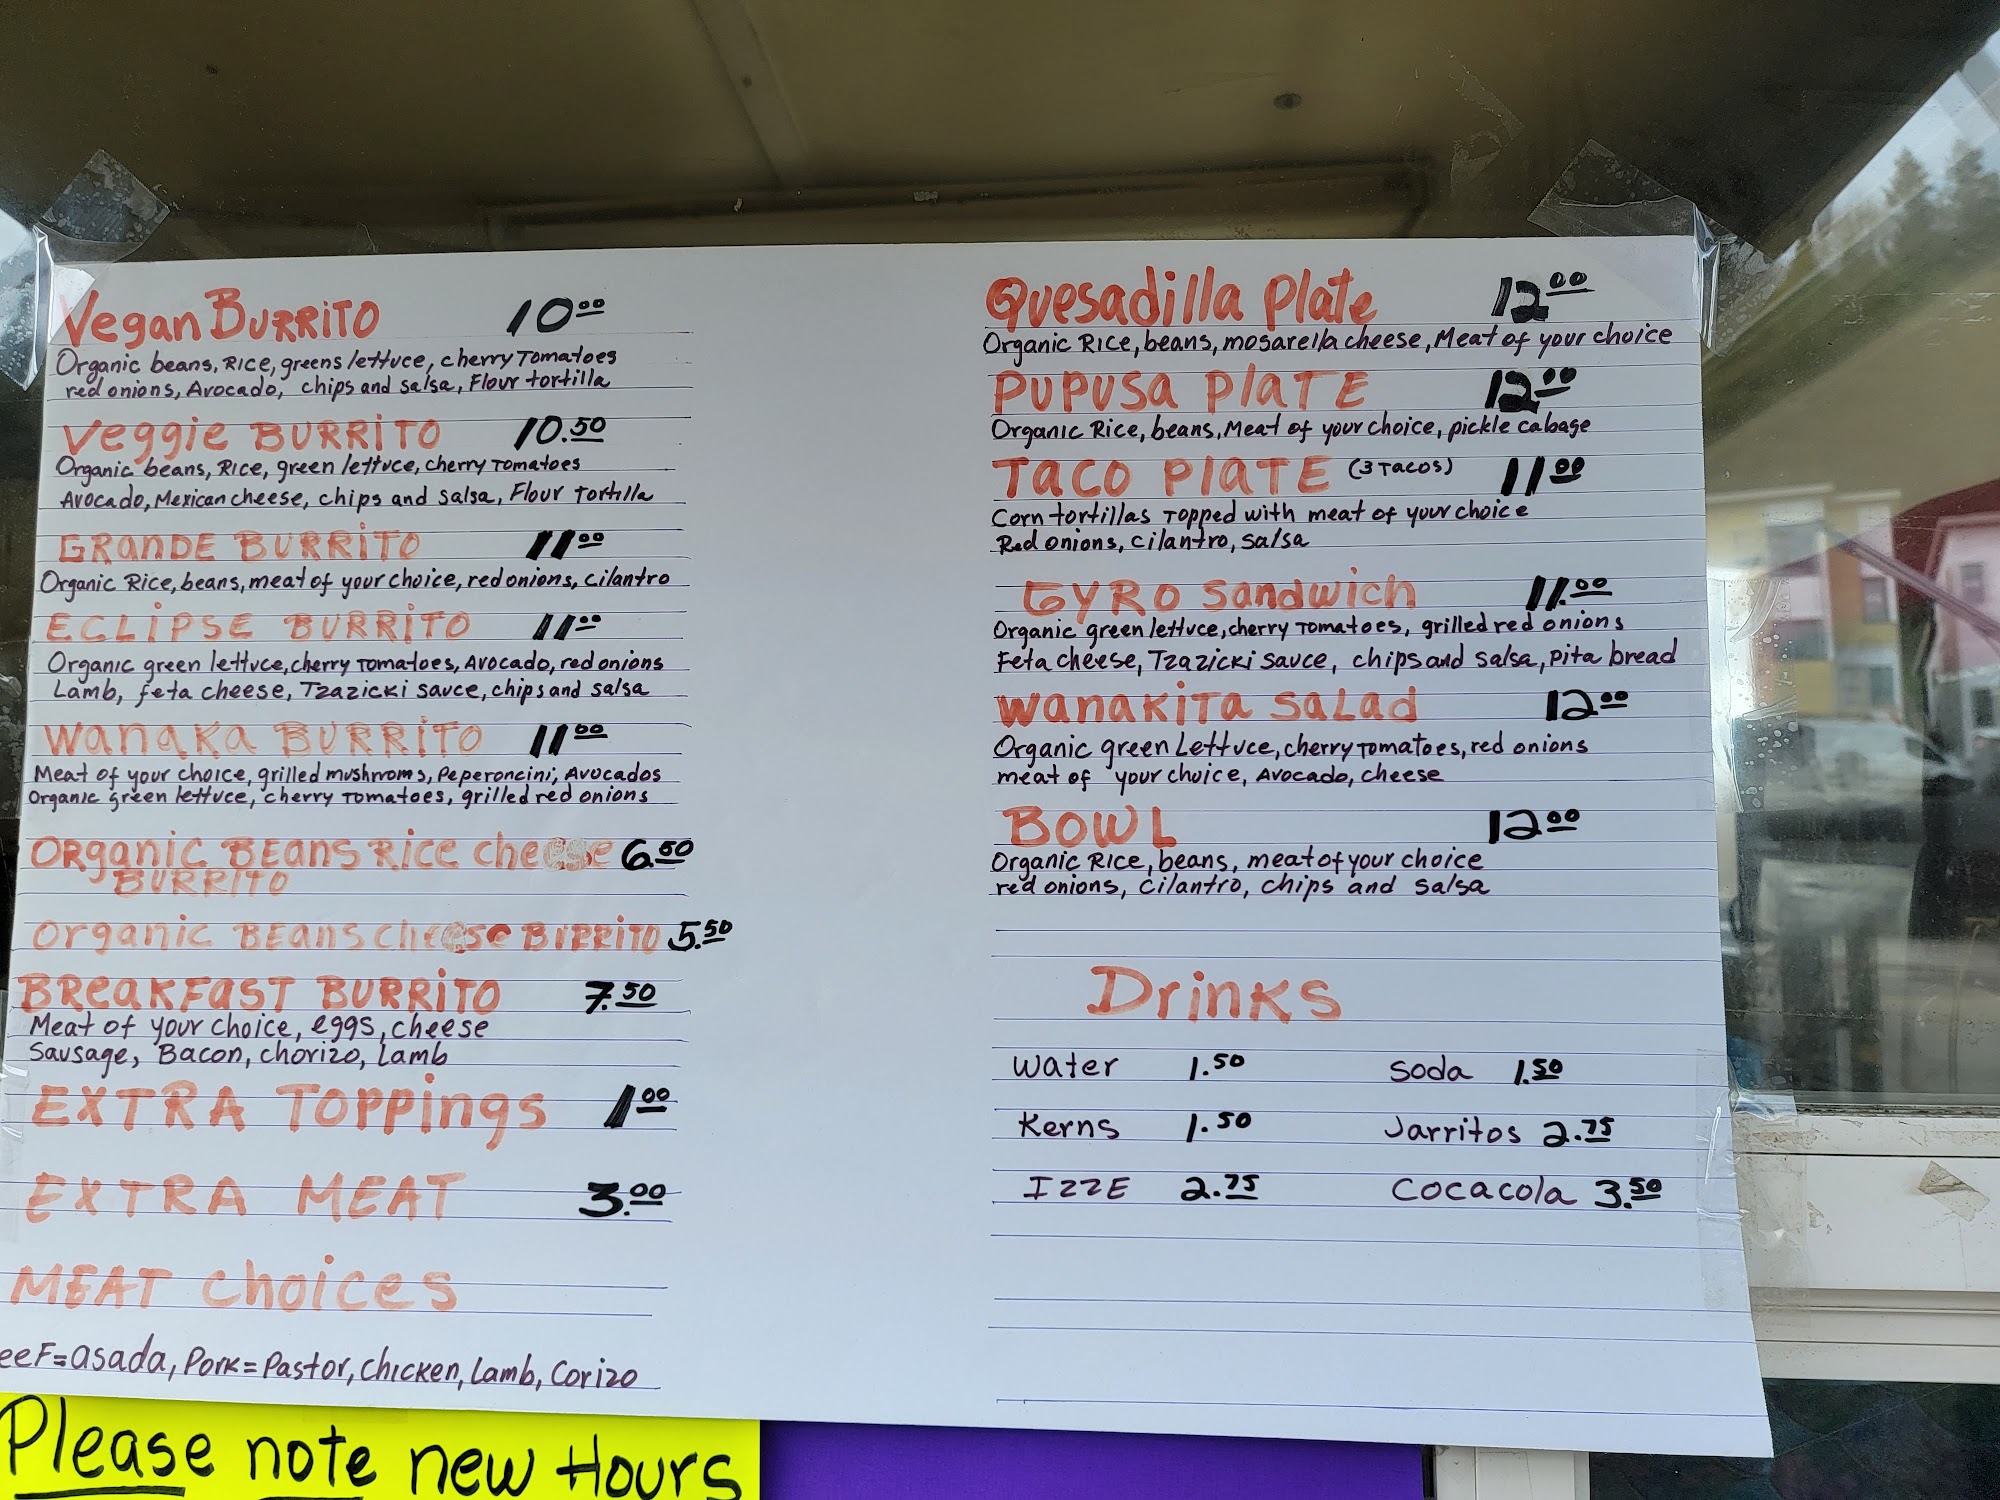 Vegan BURRiTO 10.00
Organic beans, Rice, greens lettuce, cherry Tomatoes
red onions, Avocado, chips and salsa, Flour tortilla
Veggie BURRiTO 10.50
Organic beans, Rice, green lettuce, cherry Tomatoes
Avocado, Mexican cheese, chips and salsa, Flour Tortilla
GRANDE BURRiTO 11.00
Organic Rice, beans, meat of your choice, red onions, cilantro
ECLiPSE BURRiTO 11.00
Organic green lettuce, cherry Tomatoes, Avocado, red onions
Lamb, feta cheese, Tzazicki sauce, chips and salsa
WANAKA BURRiTO 11.00
Meat of your choice, grilled mushroms, Peperoncini, Avocados
Organic green lettuce, cherry Tomatoes, grilled red onions
Organic BEANS Rice cheese 6.50
BURRITO
Organic BEANS cheese BURRITO 5.50
BREAKFAST BURRiTO 7.50
Meat of your choice, eggs, cheese
Sausage, Bacon, chorizo, Lamb
EXTRA TOppings 1.00
EXTRA MEAT 3.00
MEAT choices
eeF=asada, Pork=Pastor, chicken, Lamb, Corizo
Please note new Hours
Quesadilla Plate 12.00
Organic Rice, beans, mosarella cheese, Meat of your choice
PUPUSA PlATE 12.00
Organic Rice, beans, Meat of your choice, pickle cabage
TACO PlATE (3 TACOS) 11.00
Corn tortillas Topped with meat of your choice
Red onions, cilantro, salsa
GYRO Sandwich 11.00
Organic green lettuce, cherry Tomatoes, grilled red onions
Feta cheese, Tzazicki sauce, chips and salsa, Pita bread
WanakiTa SaLad 12.00
Organic green Lettuce, cherry Tomatoes, red onions
meat of your choice, Avocado, cheese
BOWL 12.00
Organic Rice, beans, meat of your choice
red onions, cilantro, chips and salsa
Drinks
Water 1.50 Soda 1.50
Kerns 1.50 Jarritos 2.75
IZZE 2.75 Cocacola 3.50